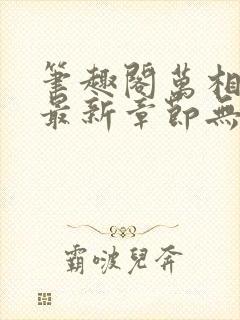 筆趣閣萬相
最新章節無
霸啵兒奔